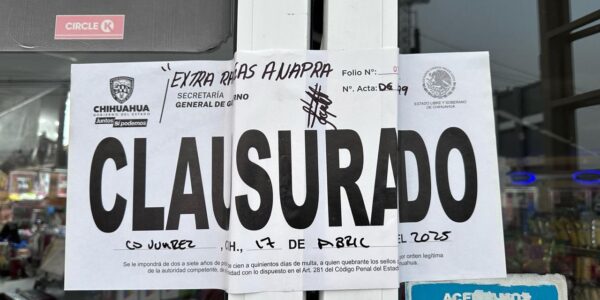 CIRCLE K
"EXTRA RAGAS ANAPRA
Folio N°:
CHIHUAHUA
GOBIERNO DEL ESTADO
Juntos Sí podemos
SECRETARÍA
GENERAL DE G INO
N°. Acta: DG 99
ESTADO LIBRE Y SOBERANO
DE CHIHUAHUA
CLAUSURADO
CD JUAREZ, CH., 17 DE ABRIL EL 2025
Se le impondrá de dos a siete años de pr ien a quinientos días de multa, a quien quebrante los sellos por orden legítima
de la autoridad competente, de idad con lo dispuesto en el Art. 281 del Código Penal del Estado Chihuahua.